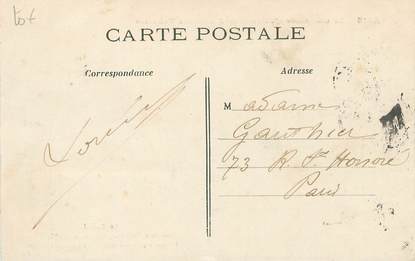 CARTE POSTALE
Correspondance
Adresse
Madame
Gauthier
73 R. St Honoré
Paris